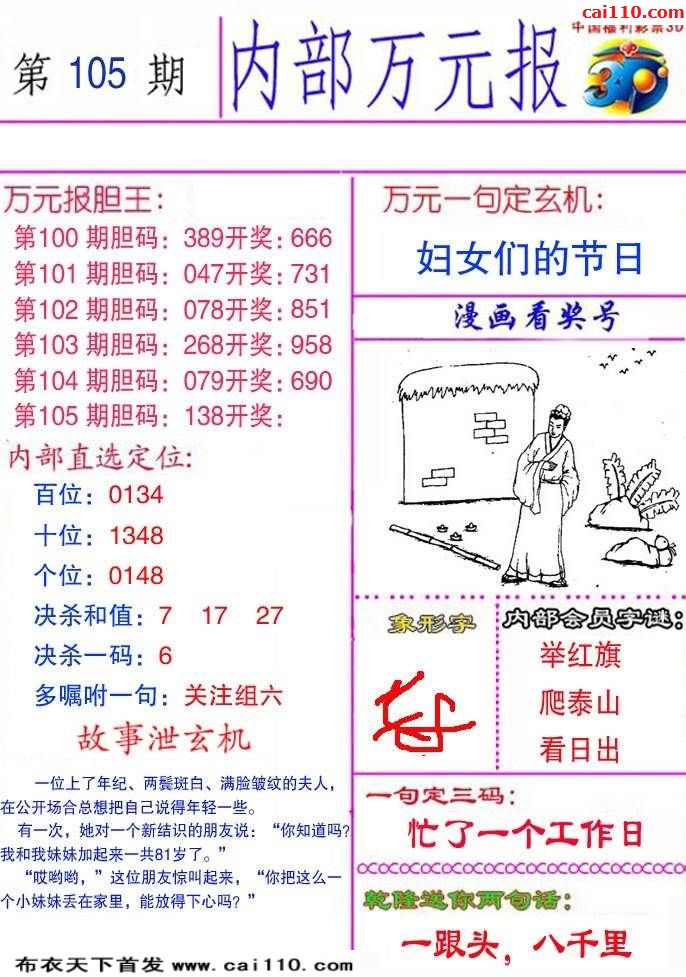 cai110.com
中国福利彩票3D
第 105 期
内部万元报
3D
万元报胆王：
第100 期胆码：389开奖：666
第101 期胆码：047开奖：731
第102 期胆码：078开奖：851
第103 期胆码：268开奖：958
第104 期胆码：079开奖：690
第105 期胆码：138开奖：
内部直选定位：
百位：0134
十位：1348
个位：0148
决杀和值：7 17 27
决杀一码：6
多嘱咐一句：关注组六
故事泄玄机
一位上了年纪、两鬓斑白、满脸皱纹的夫人，
在公开场合总想把自己说得年轻一些。
有一次，她对一个新结识的朋友说：“你知道吗？
我和我妹妹加起来一共81岁了。”
“哎哟哟，”这位朋友惊叫起来，“你把这么一
个小妹妹丢在家里，能放得下心吗？”
布衣天下首发 www.cai110.com
万元一句定玄机：
妇女们的节日
漫画看奖号
象形字
内部会员字谜：
举红旗
爬泰山
看日出
一句定三码：
忙了一个工作日
乾隆送你两句话：
一跟头，八千里